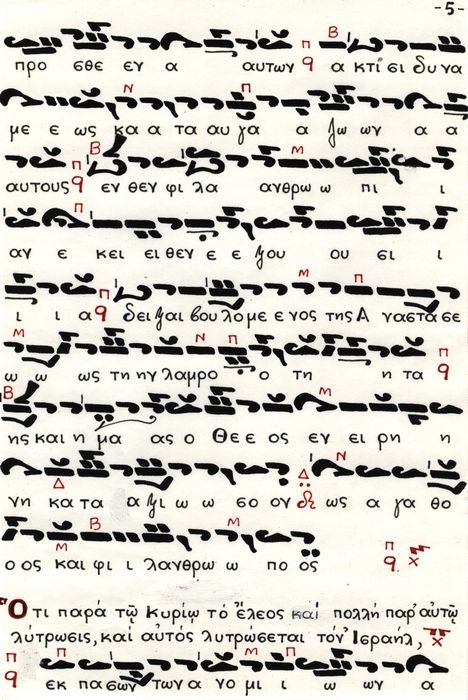 -5-
προ σθε εν α αυτων α κτί σι δυ να
με ε ως κα α τα αυ γα α ζω ων α α
αυτους εν θεν φι λα ανθρω ω πι ι
αν ε κει ει θεν ε ε ξου ου σι ι
ι ι α δει ξαι βου λο με ε νος της Α ναστα σε
ω ω ως τη ην λαμπρο ο τη η τα
ης και η μα ας ο Θε ε ος εν ει ρη η
νη κα τα α ξι ω ω σο ον ως α γα θο
ο ος και φι ι λανθρω ω πο ος
Ὅτι παρὰ τῷ Κυρίῳ τὸ ἔλεος καὶ πολλὴ παρ' αὐτῷ
λύτρωσις, καὶ αὐτὸς λυτρώσεται τὸν Ἰσραήλ,
εκ πασων των α νο μι ι ω ων α